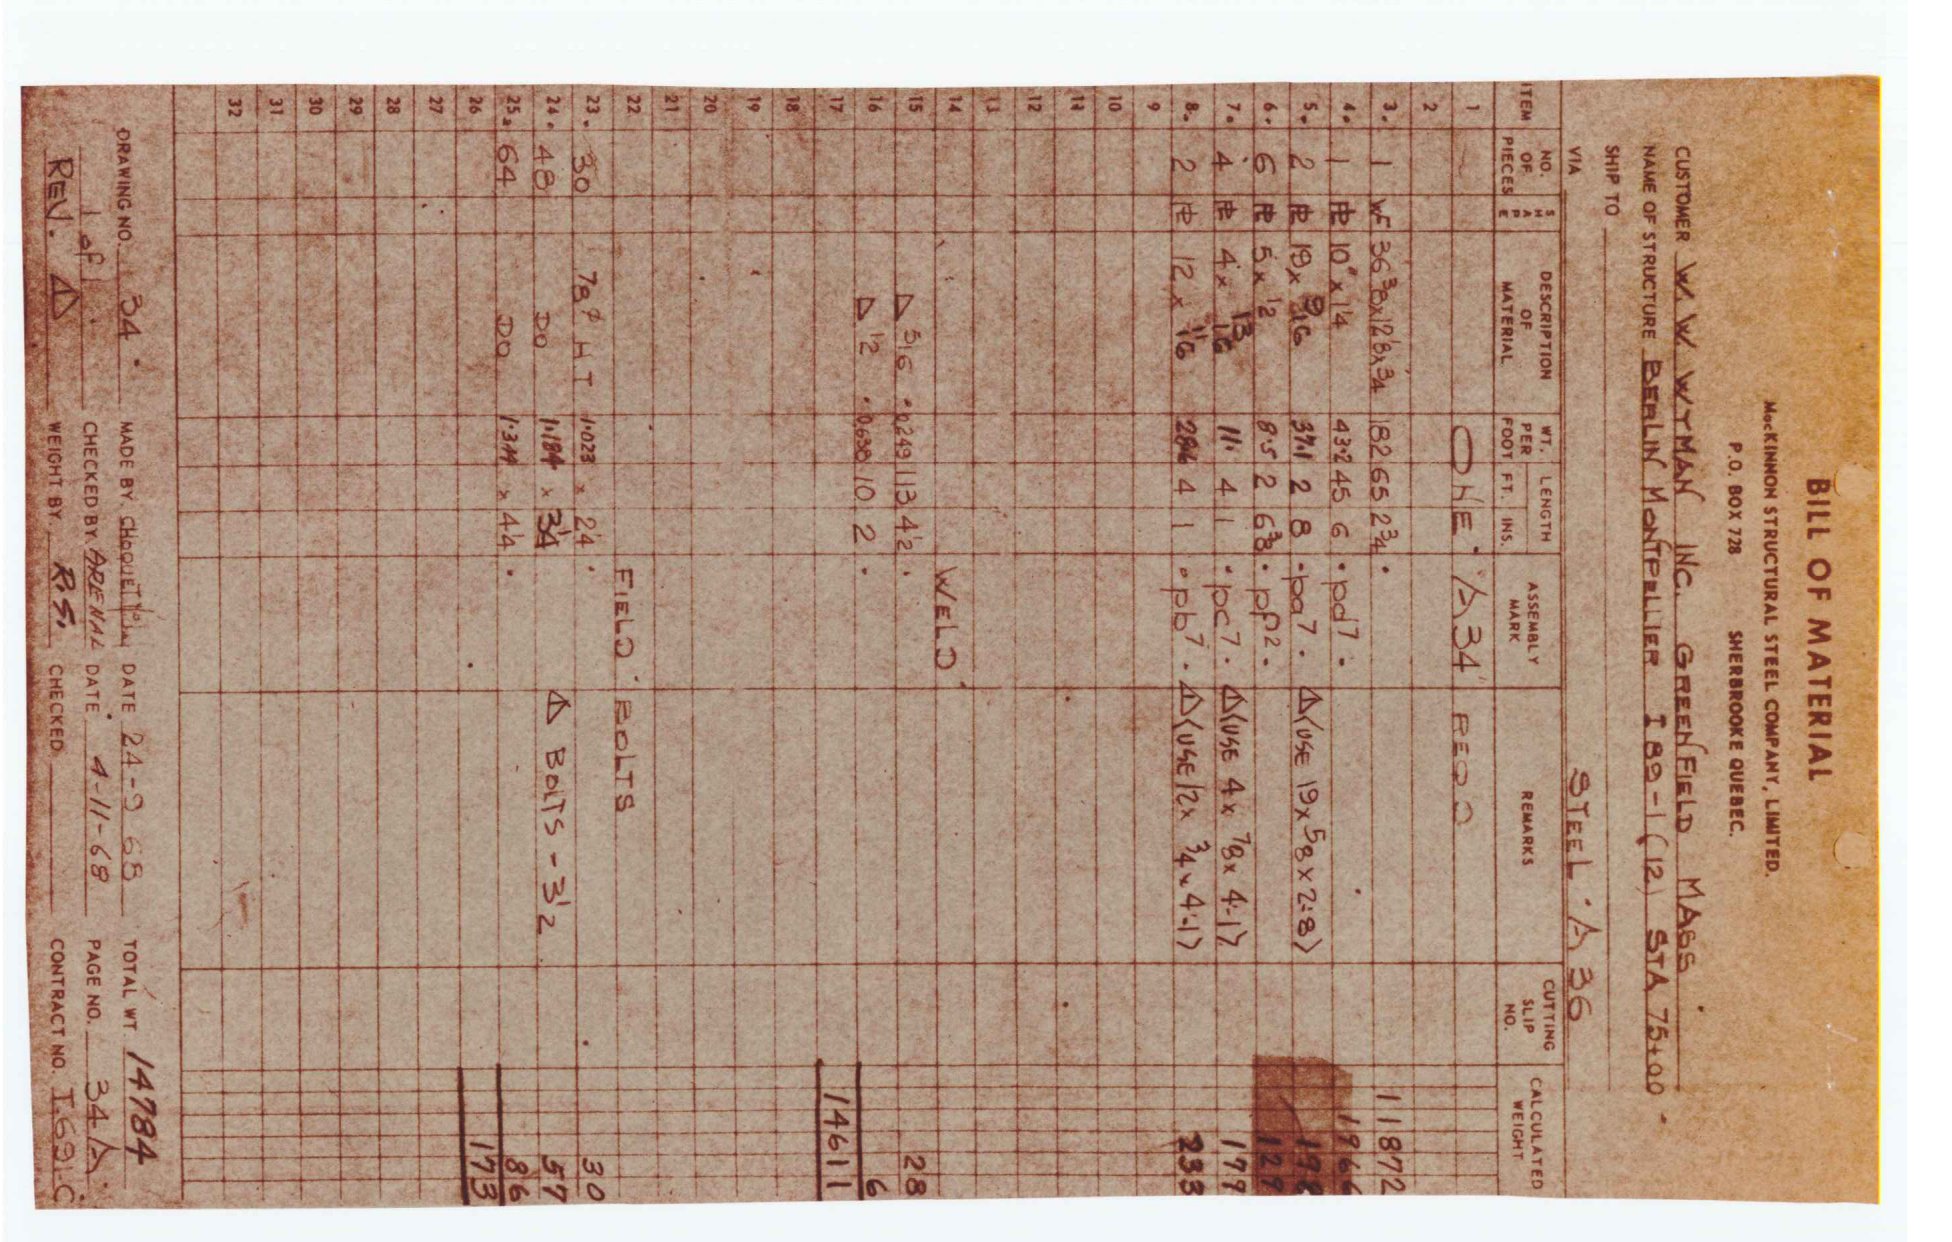 BILL OF MATERIAL
MacKINNON STRUCTURAL STEEL COMPANY, LIMITED.
P.O. BOX 728 SHERBROOKE QUEBEC.
CUSTOMER W. W WYMAN INC. GREENFIELD MASS
NAME OF STRUCTURE BERLIN MONTPELLIER I 89-1 (12) STA 75+00
SHIP TO
VIA STEEL A 36
ITEM NO. OF PIECES SHAPE DESCRIPTION OF MATERIAL WT. PER FOOT LENGTH FT. INS. ASSEMBLY MARK REMARKS CUTTING SLIP NO. CALCULATED WEIGHT
1 ONE "A34" REQD
2
3. 1 WF 36 3/8 x 12 1/8 x 3/4 182 65 2 3/4 11872
4. 1 PL 10" x 1 1/4 43.2 45 6 pd7 1966
5. 2 PL 19 x 9/16 37.1 2 8 pa7 △ (USE 19 x 5/8 x 2-8) 198
6. 6 PL 5 x 1/2 8.5 2 6 3/8 pp2 129
7. 4 PL 4 x 13/16 11.1 4 1 pc7 △ (USE 4 x 7/8 x 4-1) 179
8. 2 PL 12 x 11/16 28.6 4 1 pb7 △ (USE 12 x 3/4 x 4-1) 233
9
10
11
12
13
14 WELD
15 △ 5/16 0.249 113 4 1/2 28
16 △ 1/2 0.638 10 2 6
17 14611
18
19
20
21
22 FIELD BOLTS
23. 30 7/8 ø HT 1.023 x 2 1/4 30
24. 48 DO 1.184 x 3 1/4 △ BOLTS - 3 1/2 57
25. 64 DO 1.344 x 4 1/4 86
26 173
27
28
29
30
31
32
DRAWING NO. 34 MADE BY DATE 24-9 68 TOTAL WT 14784
1 of 1 CHECKED BY ARENAL DATE 4-11-68 PAGE NO. 34A
REV. △ WEIGHT BY R.S. CHECKED CONTRACT NO. I.691-C